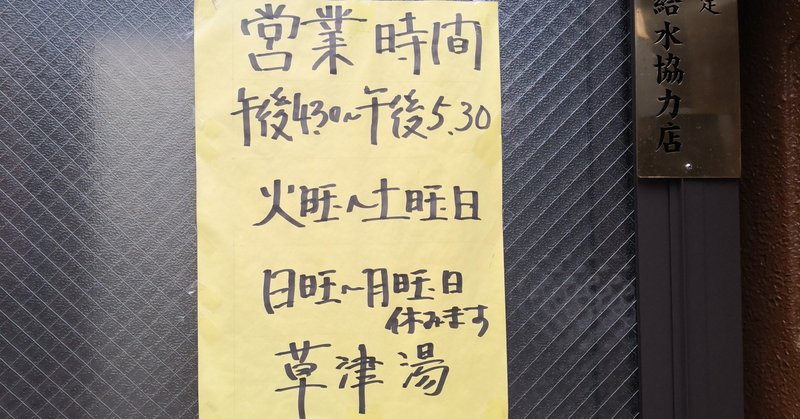 営業時間
午後4.30~午後5.30
火旺~土旺日
日旺~月旺日
休みます
草津湯
定
給水協力店